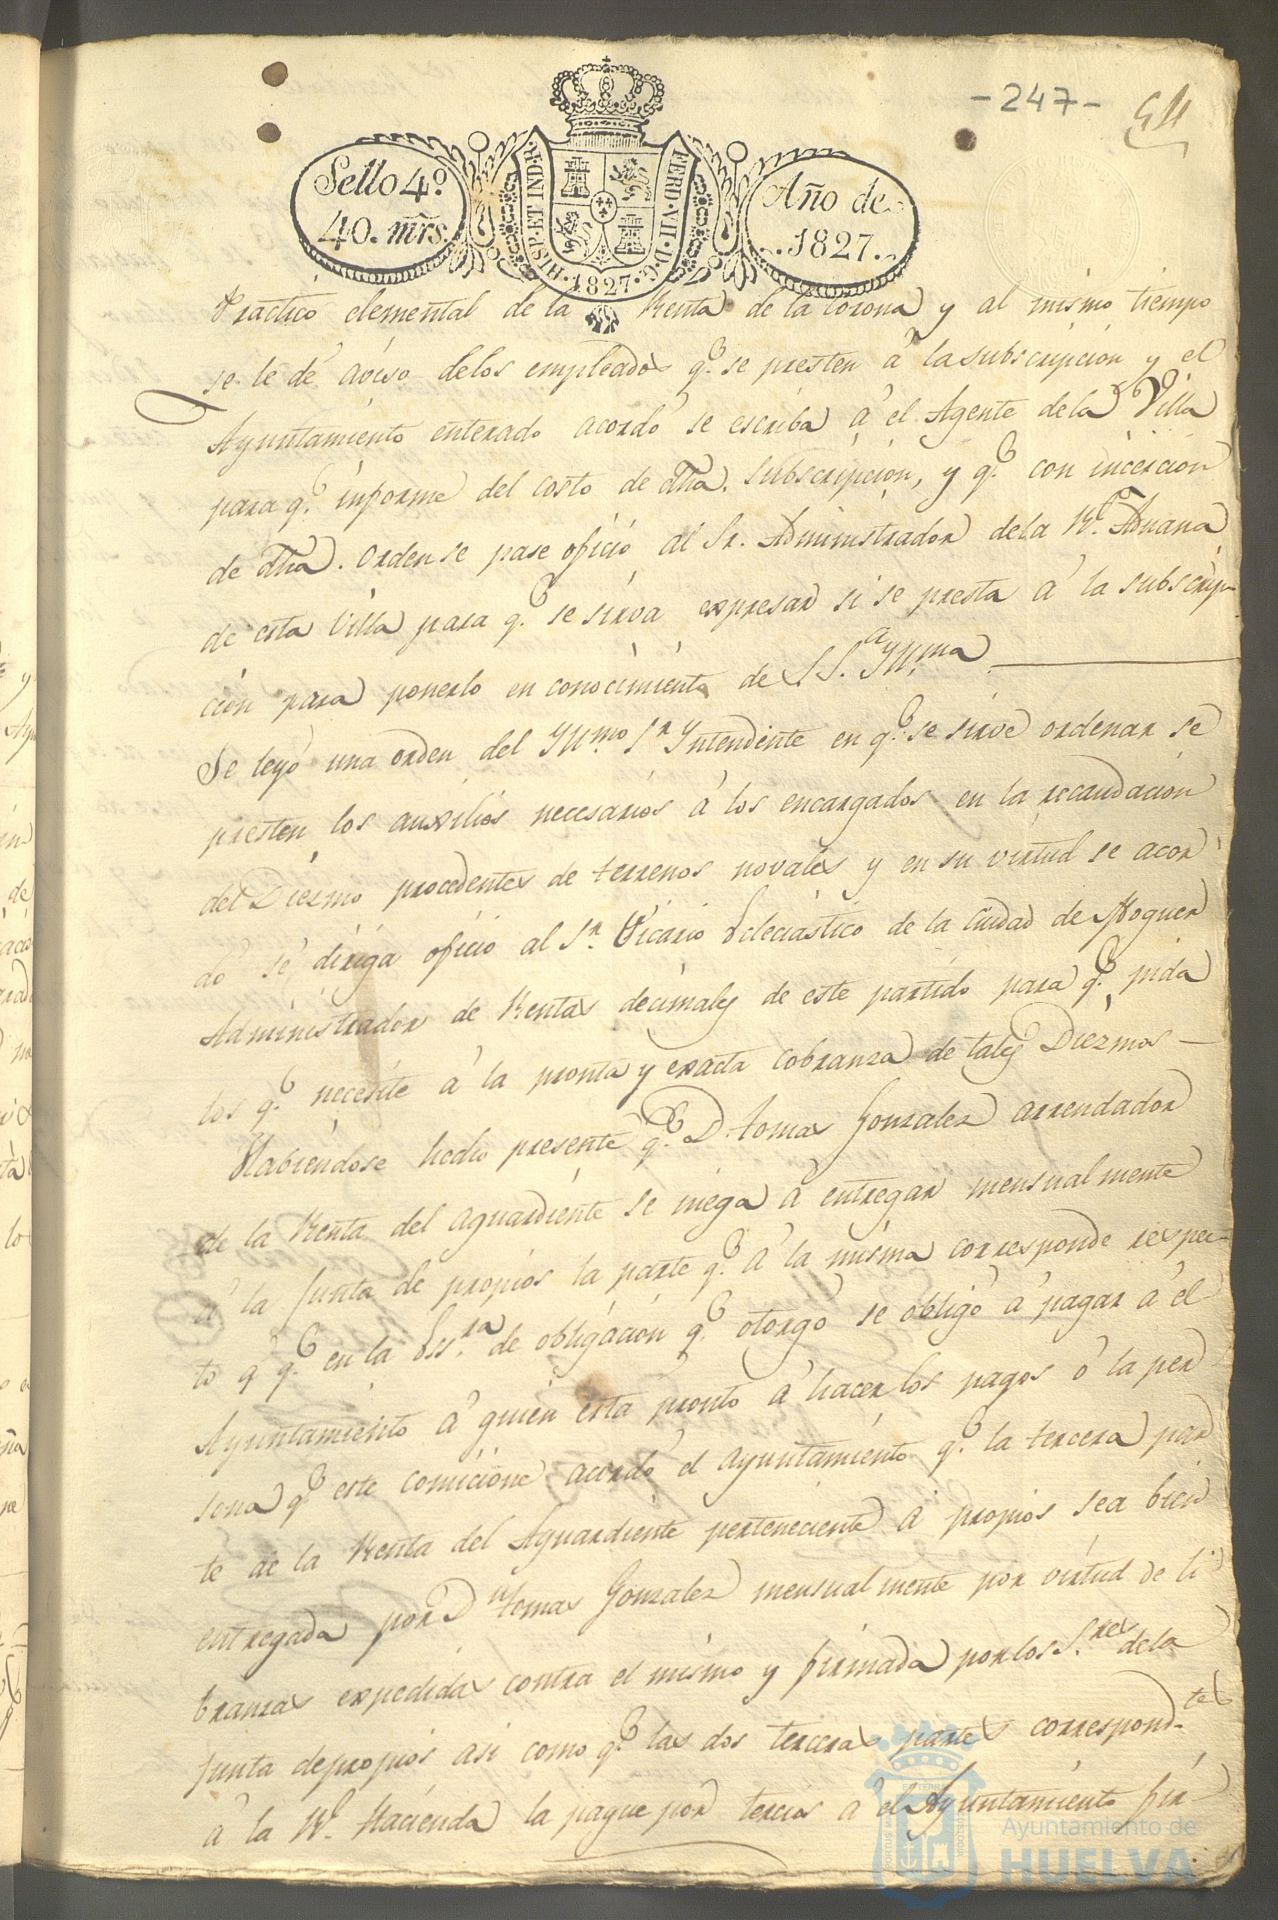 -247- 54
Sello 4º
40. mrs.
HISP. ET IND. R.
FERD. VII. D. G.
1827
Año de
1827.
Practico elemental de la Renta de la Corona y al mismo tiempo
se le dé aviso delos empleados q.e se presten á la subscripcion y el
Ayuntamiento enterado acordó se escriba á el Agente dela Villa
para q.e informe del costo de dha. subscripcion, y q.e con incercion
de dha. orden se pase oficio al Sr. Administrador dela Rl. Aduana
de esta Villa para q.e se sirva expresar si se presta á la subscrip-
cion para ponerlo en conocimiento de S.S.a Yll.ma
Se leyó una orden del Yll.mo Sr Yntendente en q.e se sirve ordenar se
presten los auxilios necesarios á los encargados en la recaudacion
del Diezmo procedentes de terrenos novales y en su virtud se acor
dó se dirija oficio al Sr. Vicario Ecleciastico de la Ciudad de Moguer
Administrador de Rentas decimales de este partido para q.e pida
los q.e necesite á la pronta y exacta cobranza de tales Diezmos
Habiendose hecho presente q.e D. Tomas Gonzalez arrendador
de la Renta del aguardiente se niega á entregar mensualmente
á la Junta de propios la parte q.e á la misma corresponde respec-
to q q.e en la Ess.ra de obligacion q.e otorgó se obligó á pagar á el
Ayuntamiento á quien esta pronto á hacer los pagos ó la per
sona q.e este comicione acordó el ayuntamiento q.e la tercera par
te de la Renta del Aguardiente perteneciente á propios sea bien
entregada por Dn Tomas Gonzalez mensualmente por virtud de li
branzas expedidas contra el mismo y firmada por los S.res dela
Junta depropios asi como q.e las dos terceras partes correspond.tes
á la Rl. Hacienda la pague por tercios á el Ayuntamiento fir-
PORTUS MARIS
ET TERRE
CUSTODIA
Ayuntamiento de
HUELVA